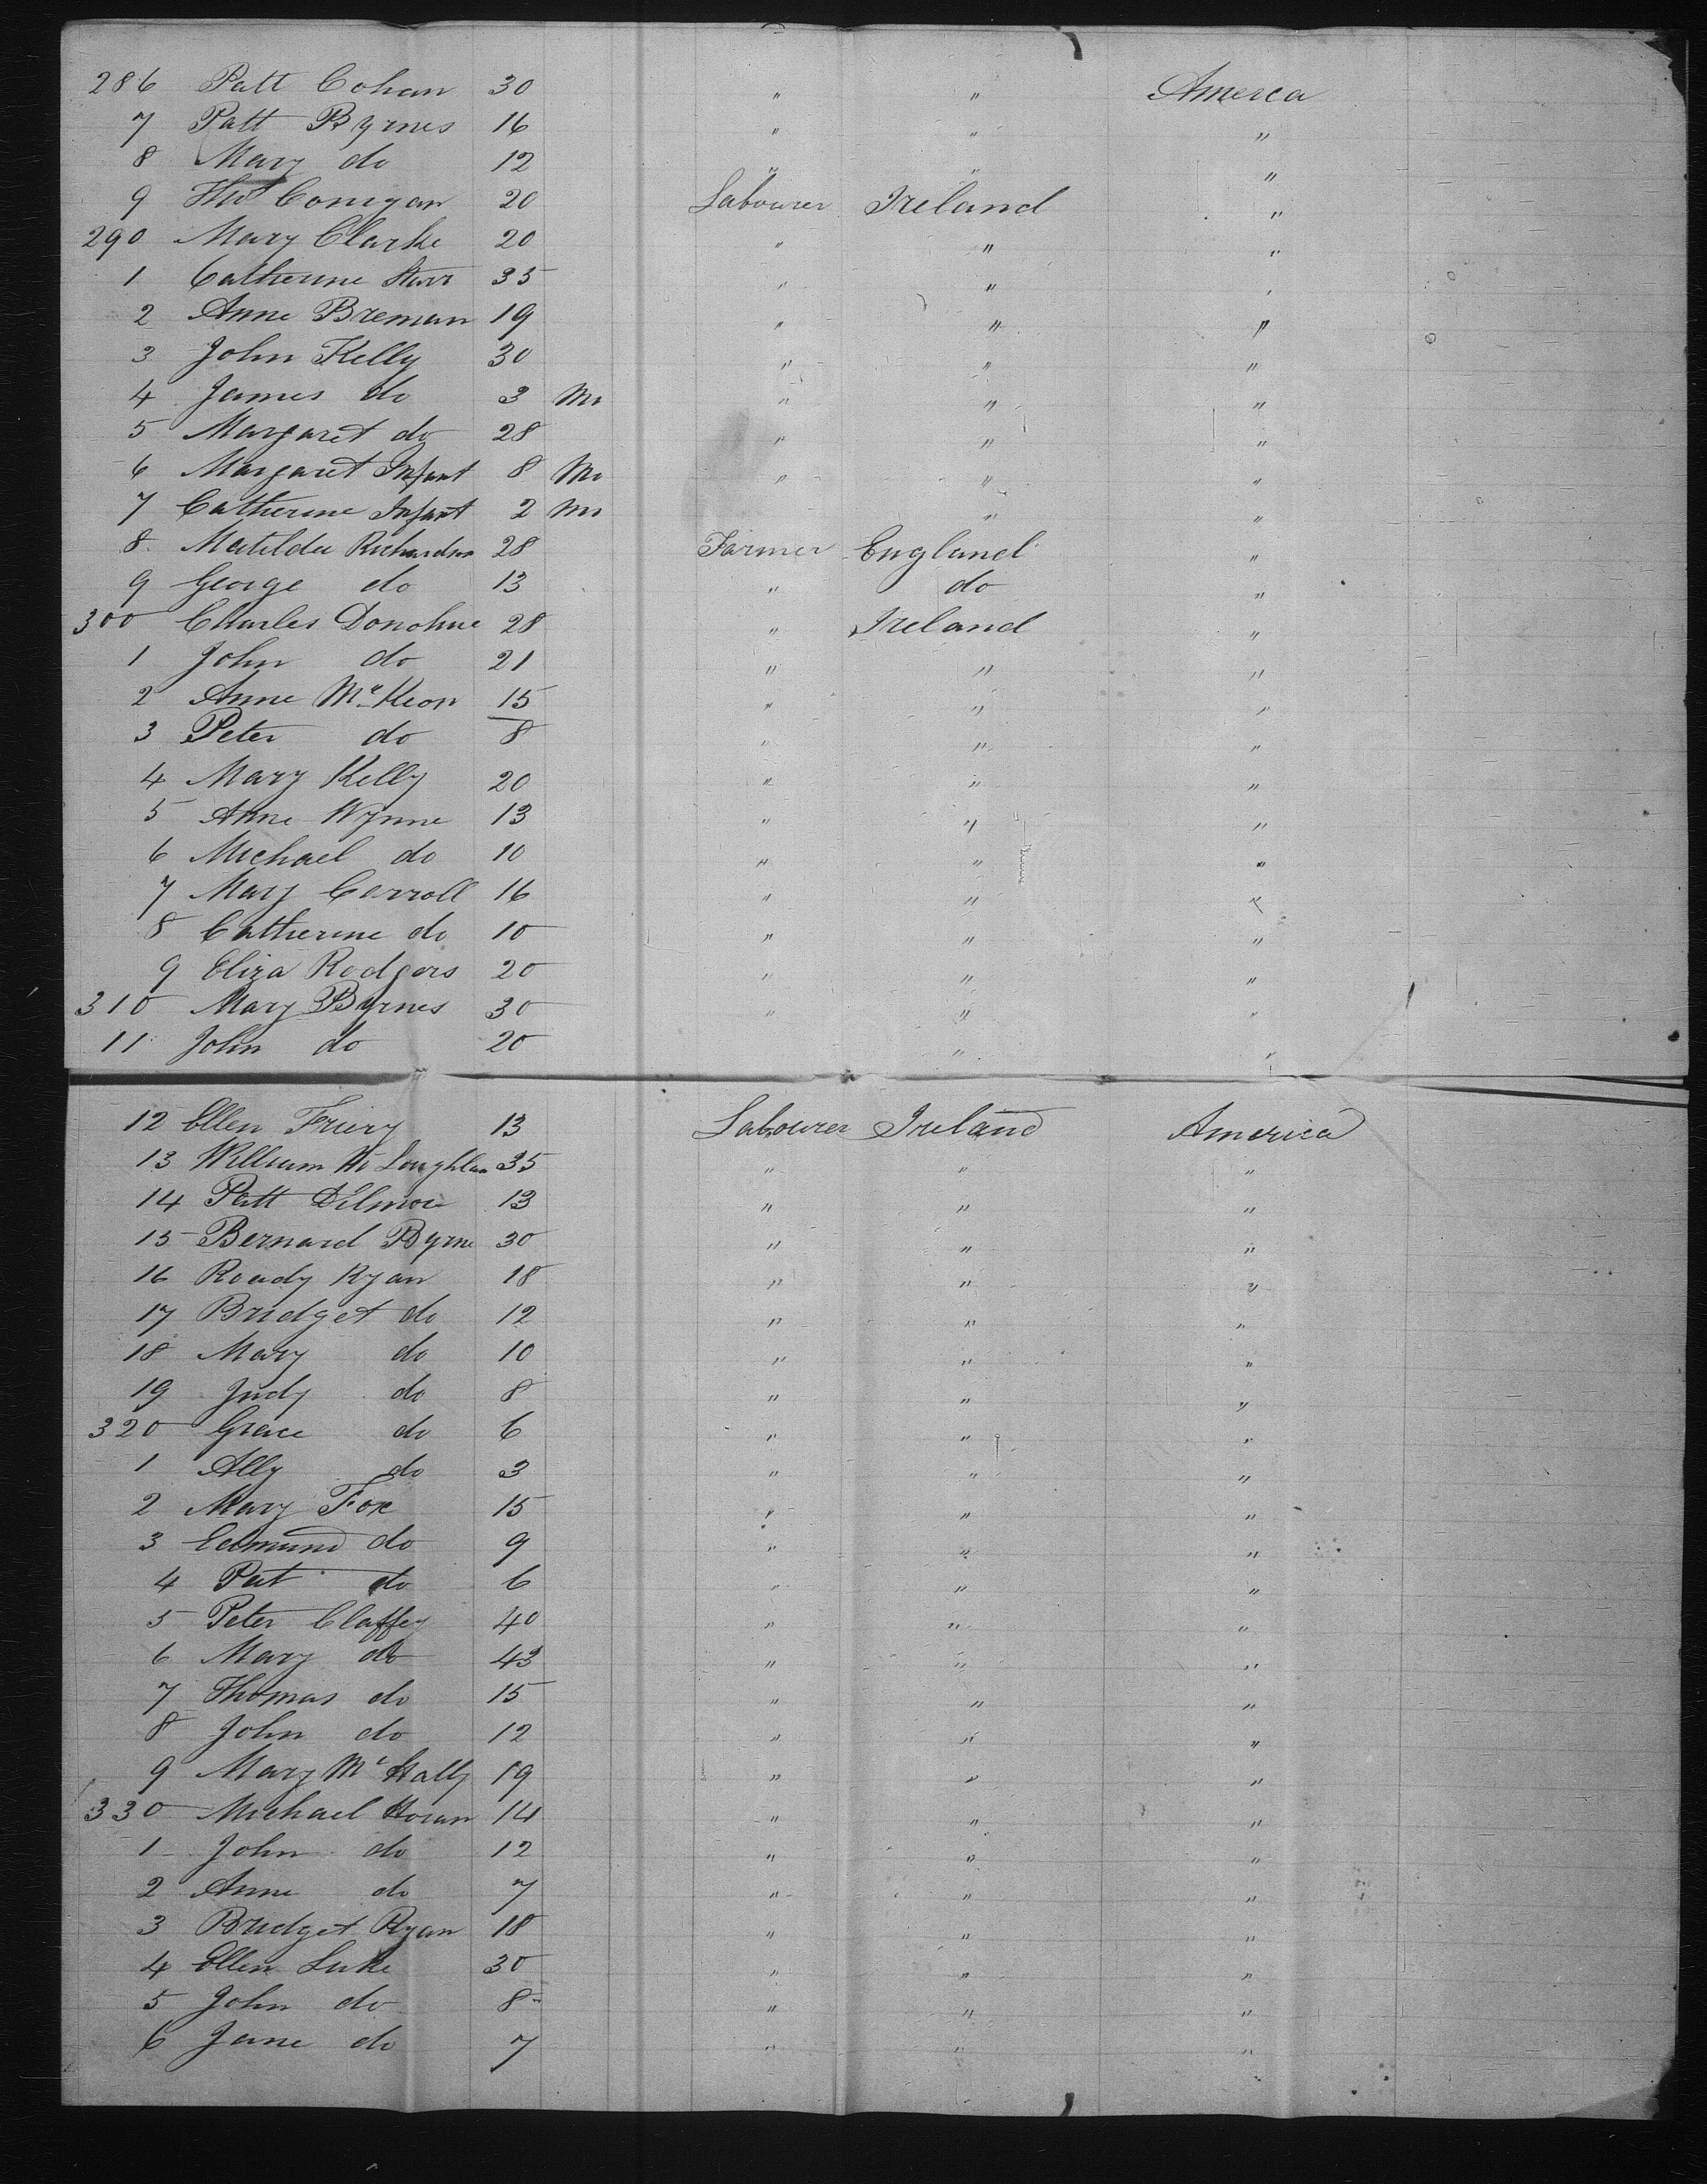 286 Patt Cohan 30 " " America
7 Patt Byrnes 16 " " "
8 Mary do 12 " " "
9 Conigan 20 Labourer Ireland "
290 Mary Clarke 20 " " "
1 Catherine Starr 35 " " "
2 Anne Brennan 19 " " "
3 John Kelly 30 " " "
4 James do 3 Mo " " "
5 Margaret do 28 " " "
6 Margaret Infant 8 Mo " " "
7 Catherine Infant 2 Mo " "
8 Matilda Richardson 28 Farmer England "
9 George do 13 " do "
300 Charles Donohue 28 " Ireland "
1 John do 21 " " "
2 Anne McKeon 15 " " "
3 Peter do 8 " " "
4 Mary Kelly 20 " " "
5 Anne Wynne 13 " " "
6 Michael do 10 " " "
7 Mary Carroll 16 " " "
8 Catherine do 10 " " "
9 Eliza Rodgers 20 " " "
310 Mary Byrnes 30 " " "
11 John do 20 " "
12 Ellen 13 Labourer Ireland America
13 William Mc Loughlan 35 " " "
14 Patt 13 " " "
15 Bernard Byrne 30 " " "
16 Roady Ryan 18 " " "
17 Bridget do 12 " " "
18 Mary do 10 " " "
19 Judy do 8 " " "
320 Grace do 6 " " "
1 Ally do 3 " " "
2 Mary Fox 15 " " "
3 Edmund do 9 " " "
4 Pat do 6 " " "
5 Peter Claffey 40 " " "
6 Mary do 43 " " "
7 Thomas do 15 " " "
8 John do 12 " " "
9 Mary Mc Nally 19 " " "
330 Michael Horan 14 " " "
1 John do 12 " " "
2 Anne do 7 " " "
3 Bridget Ryan 18 " " "
4 Ellen Luke 30 " " "
5 John do 8 " " "
6 Jane do 7 " " "